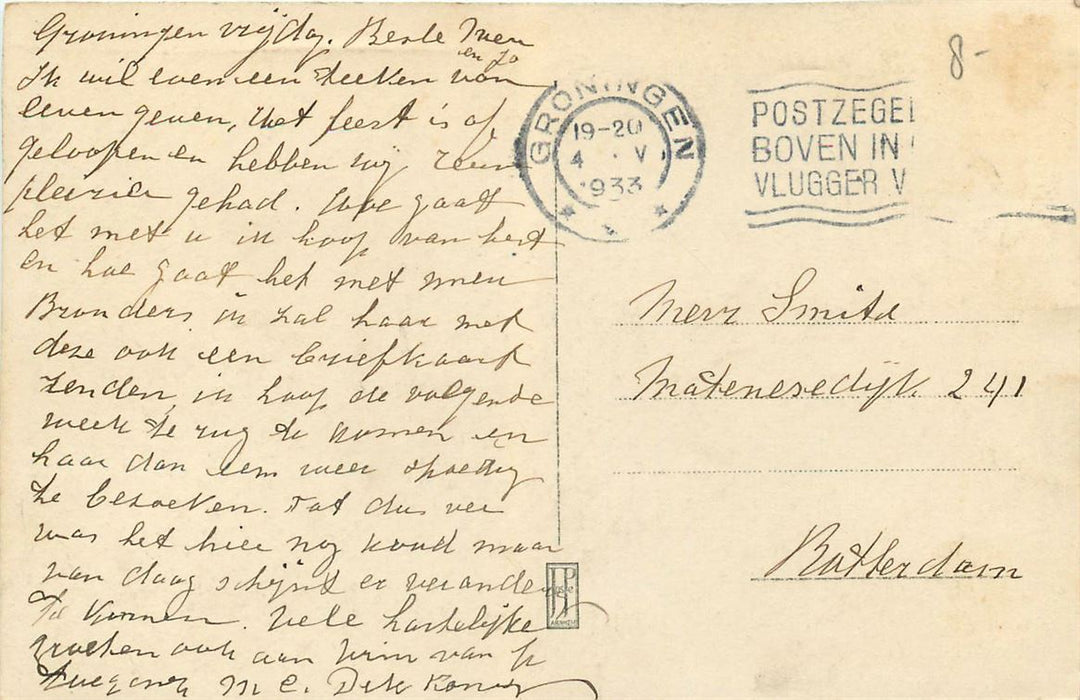 Groningen vrijdag. Beste
en Jo
Ik wil even een teeken van
leven geven, Het feest is af
geloopen en hebben wij veen
plezier gehad. Hoe gaatt
het met u ik hoop van best
en hoe gaat het met
ik zal haar met
deze ook een briefkaart
zenden, ik hoop de volgende
week te rug te komen en
haar dan eem weer spoedig
te bezoeken. Tot dus ver
was het hier nog koud maar
van daag schijnt er verande
te komen. Vele hartelijke
groeten ook aan Wim van
M C.
GRONINGEN
19-20
4 V
1933
POSTZEGEL
BOVEN IN
VLUGGER V
8-
Herr Smitd
Matenesedijk 241
Rotterdam
JPP
ARNHEM